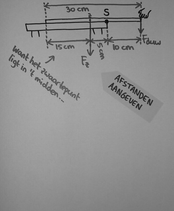 30 cm
S
15 cm
5 cm
10 cm
Fz
Fduw
Want het zwaartepunt
ligt in 't midden...
AFSTANDEN
AANGEVEN